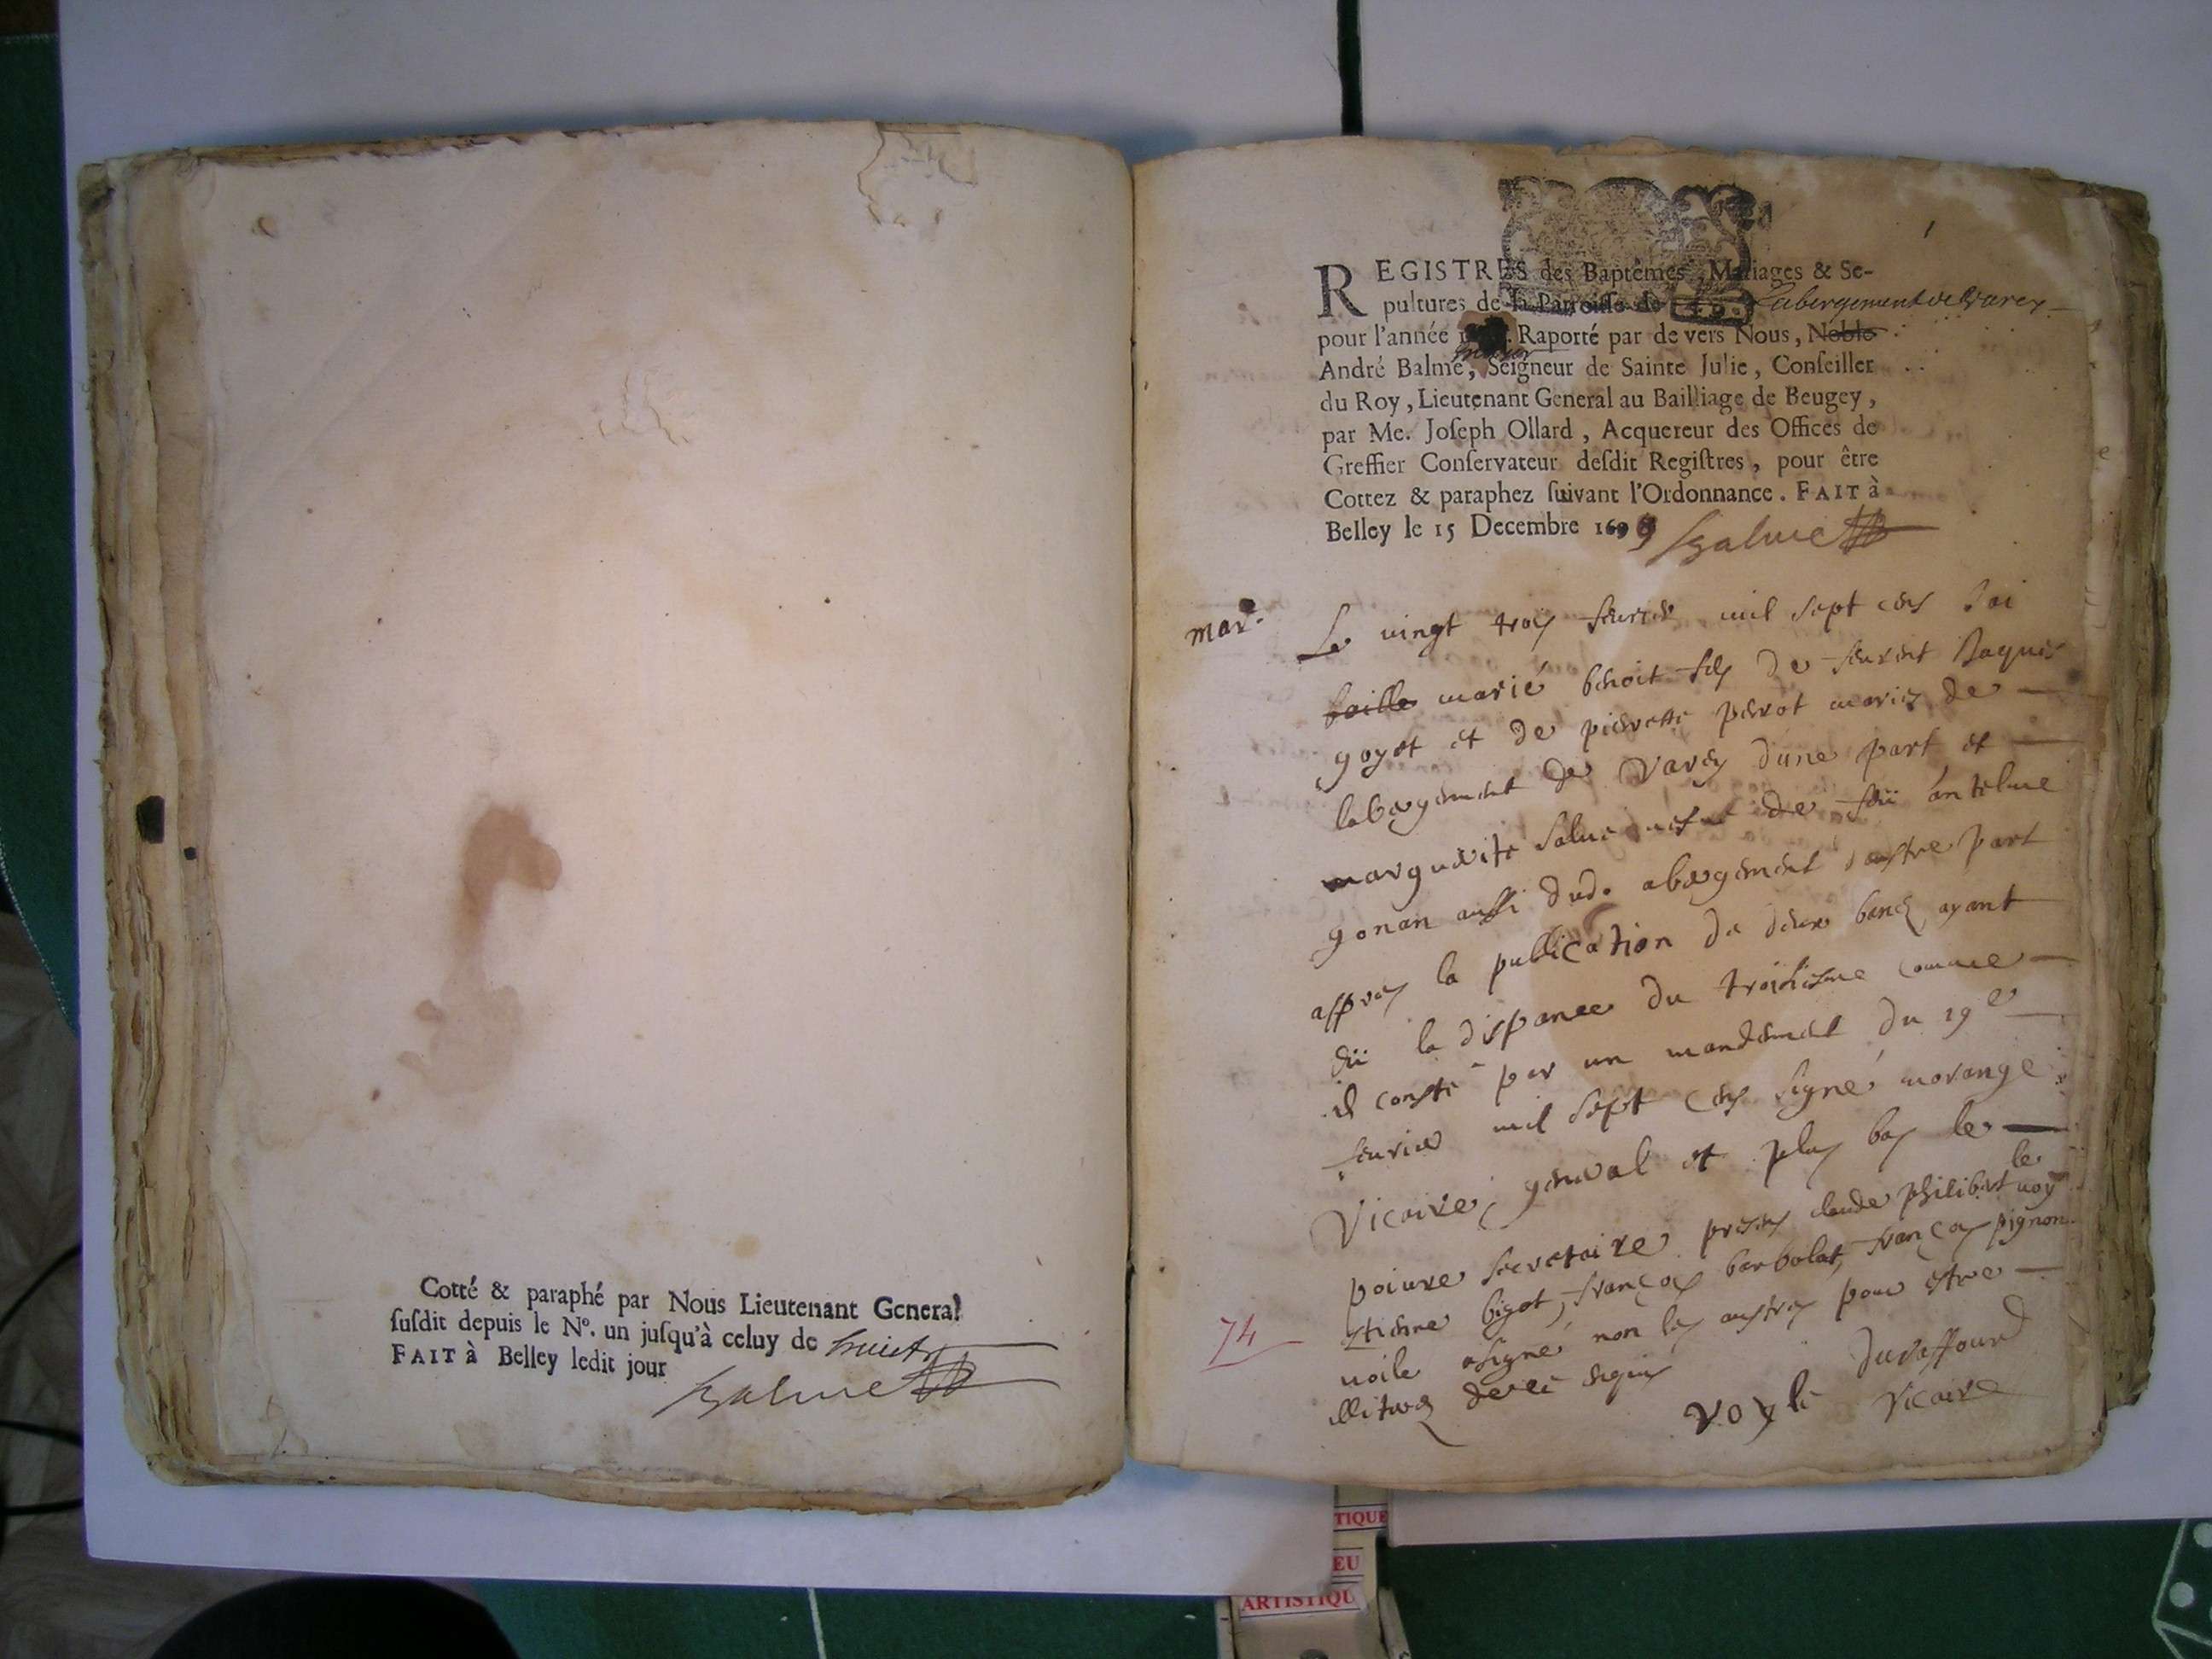 Cotté & paraphé par Nous Lieutenant General
susdit depuis le N°. un jusqu'à celuy de huict
FAIT à Belley ledit jour
Balme
1
REGISTRES des Baptêmes, Mariages & Se-
pultures de la Parroisse de Labergement de Varey
pour l'année Raporté par de vers Nous, Noble
André Balme, Seigneur de Sainte Julie, Conseiller
du Roy, Lieutenant General au Bailliage de Beugey,
par Me. Joseph Ollard, Acquereur des Offices de
Greffier Conservateur desdit Registres, pour être
Cottez & paraphez suivant l'Ordonnance. FAIT à
Belley le 15 Decembre 1699 Balme
mar.
Le vingt trois feurier mil sept cens Jai
baille marié benoit fils de Jaques
goyot et de pierrette perrot mariez de
labergement de Varey dune part et
marguerite de feü antelme
gonan aussi dud. abergement dautre part
appres la publication de deux bancs ayant
eü la dispance du troisiesme comme
il conste par un mandement du 19e
feurier mil sept cens signé morange
Vicaire general et plus bas le
poiure secretaire presens claude philibert uoy
le
etienne bigot, françois barbolat, françois pignon
uoile asigné non les austres pour estre
illiterez de ce enquis
voyle durassour
Vicaire
74
TIQUE
EU
ARTISTIQU